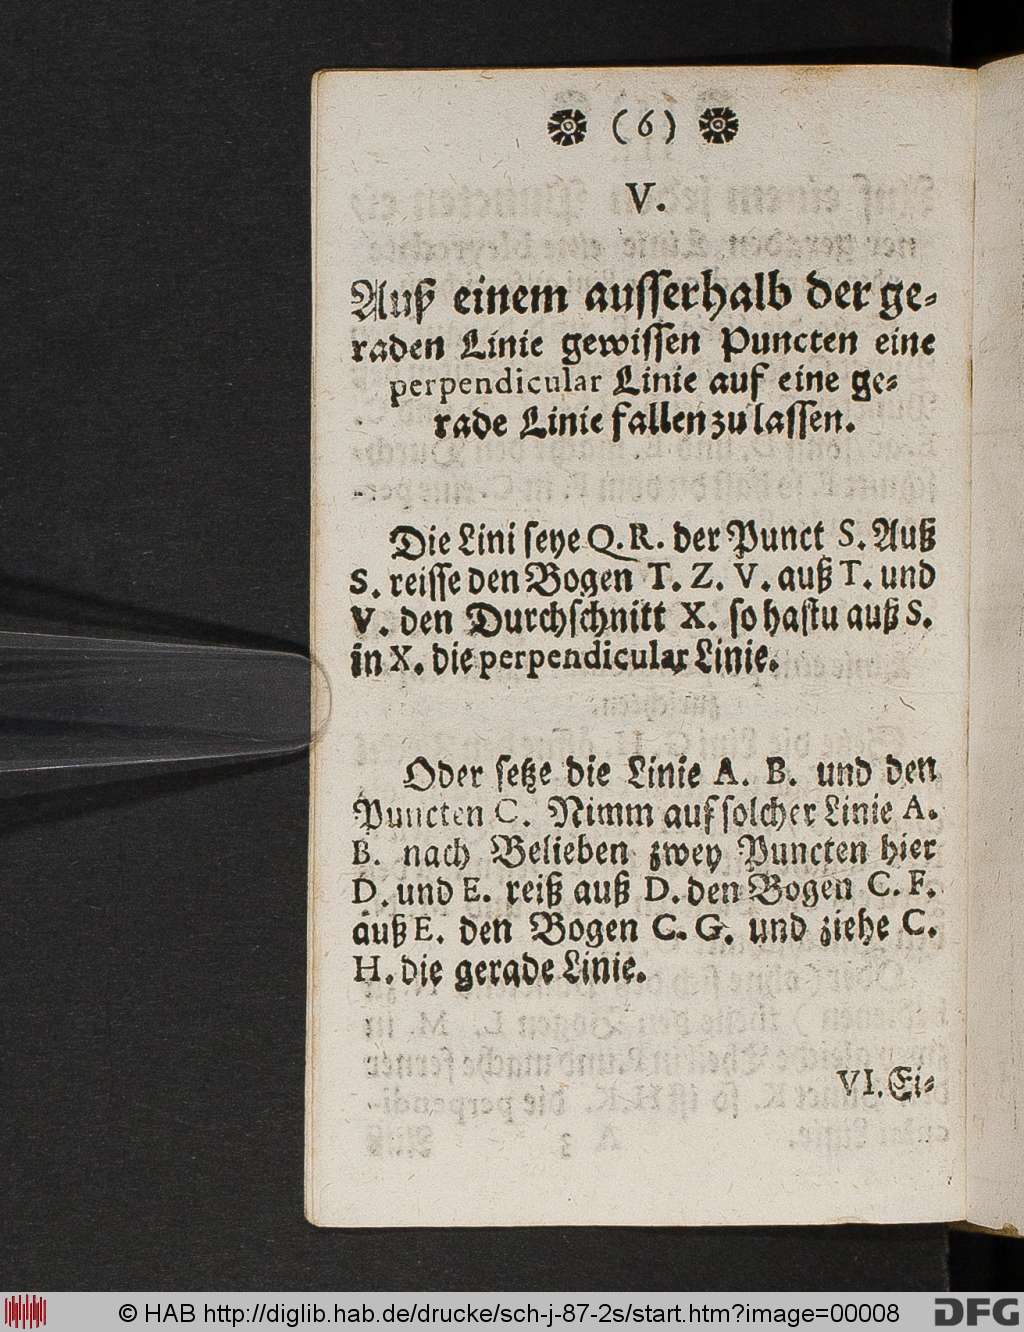 (6)
V.
Auß einem ausserhalb der ge-
raden Linie gewissen Puncten eine
perpendicular Linie auf eine ge-
rade Linie fallen zu lassen.
Die Lini seye Q. R. der Punct S. Auß
S. reisse den Bogen T. Z. V. auß T. und
V. den Durchschnitt X. so hastu auß S.
in X. die perpendicular Linie.
Oder setze die Linie A. B. und den
Puncten C. Nimm auf solcher Linie A.
B. nach Belieben zwey Puncten hier
D. und E. reiß auß D. den Bogen C. F.
auß E. den Bogen C. G. und ziehe C.
H. die gerade Linie.
VI. Ei-
© HAB http://diglib.hab.de/drucke/sch-j-87-2s/start.htm?image=00008
DFG